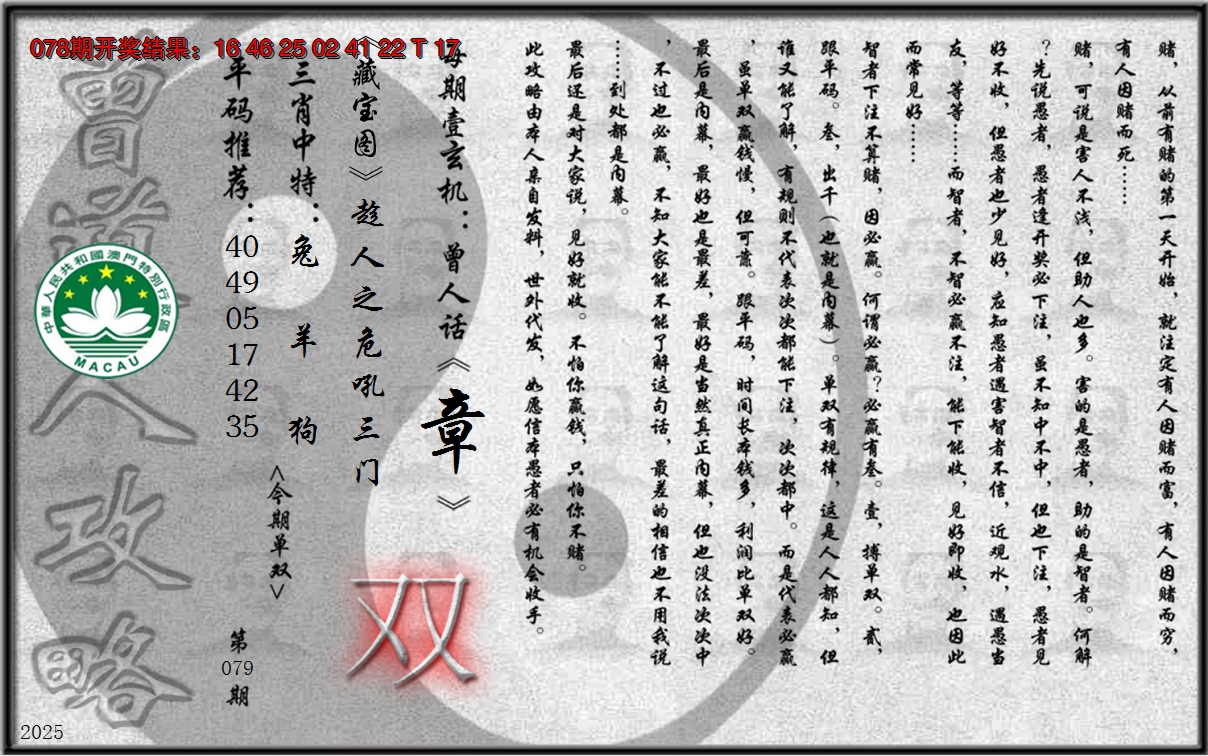 078期开奖结果：16 46 25 02 41 22 T 17
赌，从前有赌的第一天开始，就注定有人因赌而富，有人因赌而穷，
有人因赌而死……
赌，可说是害人不浅，但助人也多。害的是愚者，助的是智者。何解
？先说愚者，愚者逢开奖必下注，虽不知中不中，但也下注，愚者见
好不收，但愚者也少见好，应知愚者遇害智者不信，近观水，遇愚当
友，等等……而智者，不智必赢不注，能下能收，见好即收，也因此
而常见好……
智者下注不算赌，因必赢。何谓必赢？必赢有叁。壹，搏单双。贰，
跟平码。叁，出千（也就是内幕）。单双有规律，这是人人都知，但
谁又能了解，有规则不代表次次都能下注，次次都中。而是代表必赢
，虽单双赢钱慢，但可靠。跟平码，时间长本钱多，利润比单双好。
最后是内幕，最好也是最差，最好是当然真正内幕，但也没法次次中
，不过也必赢，不知大家能不能了解这句话，最差的相信也不用我说
……到处都是内幕。
最后还是对大家说，见好就收。不怕你赢钱，只怕你不赌。
此攻略由本人亲自发料，世外代发，如愿信本愚者必有机会收手。
每期壹玄机：曾人话《章》
《藏宝图》趁人之危吼三门
双
三肖中特：兔 羊 狗
<今期单双>
平码推荐：40 49 05 17 42 35
第079期
曾道人攻略
中華人民共和國澳門特別行政區
MACAU
2025